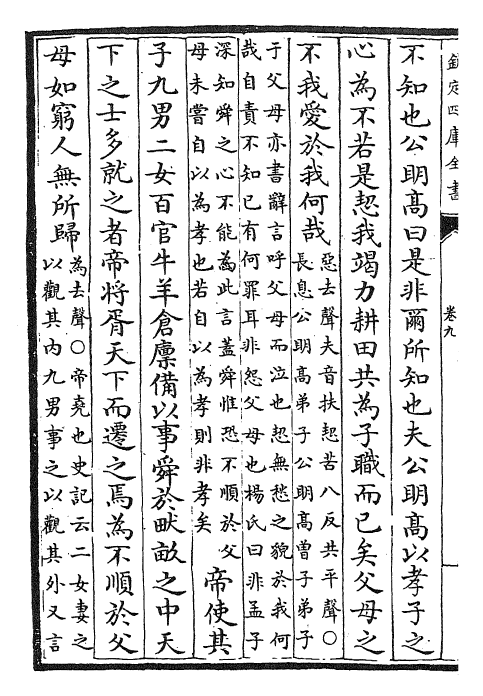 欽定四庫全書
卷九
不知也公明髙曰是非爾所知也夫公明髙以孝子之
心為不若是恝我竭力耕田共為子職而已矣父母之
不我愛於我何哉
惡去聲夫音扶恝苦八反共平聲○
長息公明髙弟子公明髙曾子弟子
于父母亦書辭言呼父母而泣也恝無愁之貌於我何
哉自責不知已有何罪耳非怨父母也楊氏曰非孟子
深知舜之心不能為此言蓋舜惟恐不順於父
母未嘗自以為孝也若自以為孝則非孝矣
帝使其
子九男二女百官牛羊倉廩備以事舜於畎畝之中天
下之士多就之者帝將胥天下而遷之焉為不順於父
母如窮人無所歸
為去聲○帝堯也史記云二女妻之
以觀其内九男事之以觀其外又言